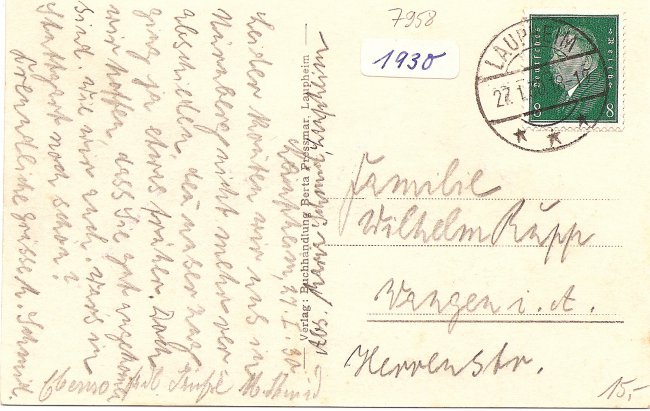 7958
1930
LAUPHEIM
27.1.
Deutsches Reich
8 8
Laupheim, 27.I.30
Leider konnten wir uns in
Nürnberg nicht mehr ver-
abschieden, da unser Zug
ging ja etwas früher. Doch
wir hoffen, dass Sie gut angekommen
sind, wie wir auch. War's in
Stuttgart noch schön?
Freundliche Grüsse h. Schmid.
Ebenso Grüße M. Schmid
Verlag: Buchhandlung Berta Fressmar, Laupheim
Abs. Schmid Laupheim
Familie
Wilhelm Rupp
Wangen i. A.
Herrenstr.
15,-